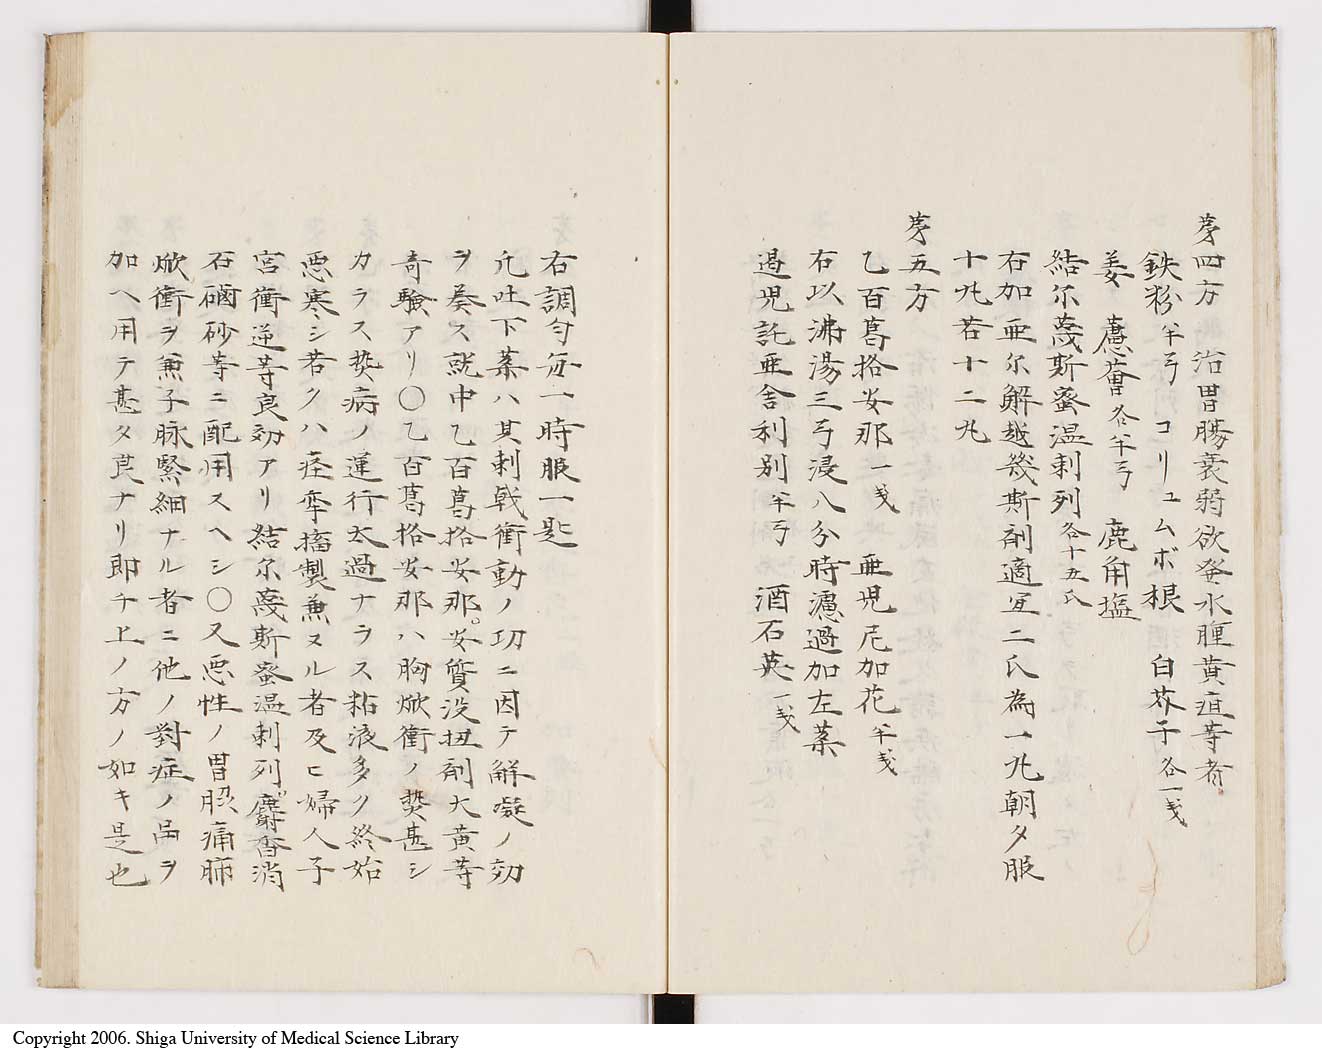 芽四方 治胃腸衰弱欲発水腫黄疸等者
鉄粉半弓 コリュムボ根 白芥子各一戔
姜 蘆薈各半弓 鹿角塩
結尓蔑斯蜜温刺列各十五氏
右加亜尓解越幾斯剤適宜二氏為一丸朝夕服
十丸若十二丸
芽五方
乙百葛格安那一戔 亜児尼加花半戔
右以沸湯三弓浸八分時濾過加左薬
過児託亜舎利別半弓 酒石英一戔
右調匀毎一時服一匙
凢吐下薬ハ其刺戟衝動ノ功ニ因テ解凝ノ効
ヲ奏ス就中乙百葛格安那。安質没扭剤大黄等
奇験アリ〇乙百葛格安那ハ胸焮衝ノ熱甚シ
カラス熱病ノ運行太過ナラス粘液多ク終始
悪寒シ若クハ痙牽搐製兼ヌル者及ヒ婦人子
宮衝逆等良効アリ結尓蔑斯蜜温刺列。麝香消
石硇砂等ニ配用スヘシ〇又悪性ノ胃脘痛肺
焮衝ヲ兼子脉緊細ナル者ニ他ノ對症ノ品ヲ
加ヘ用テ甚タ良ナリ即チ上ノ方ノ如キ是也
Copyright 2006. Shiga University of Medical Science Library